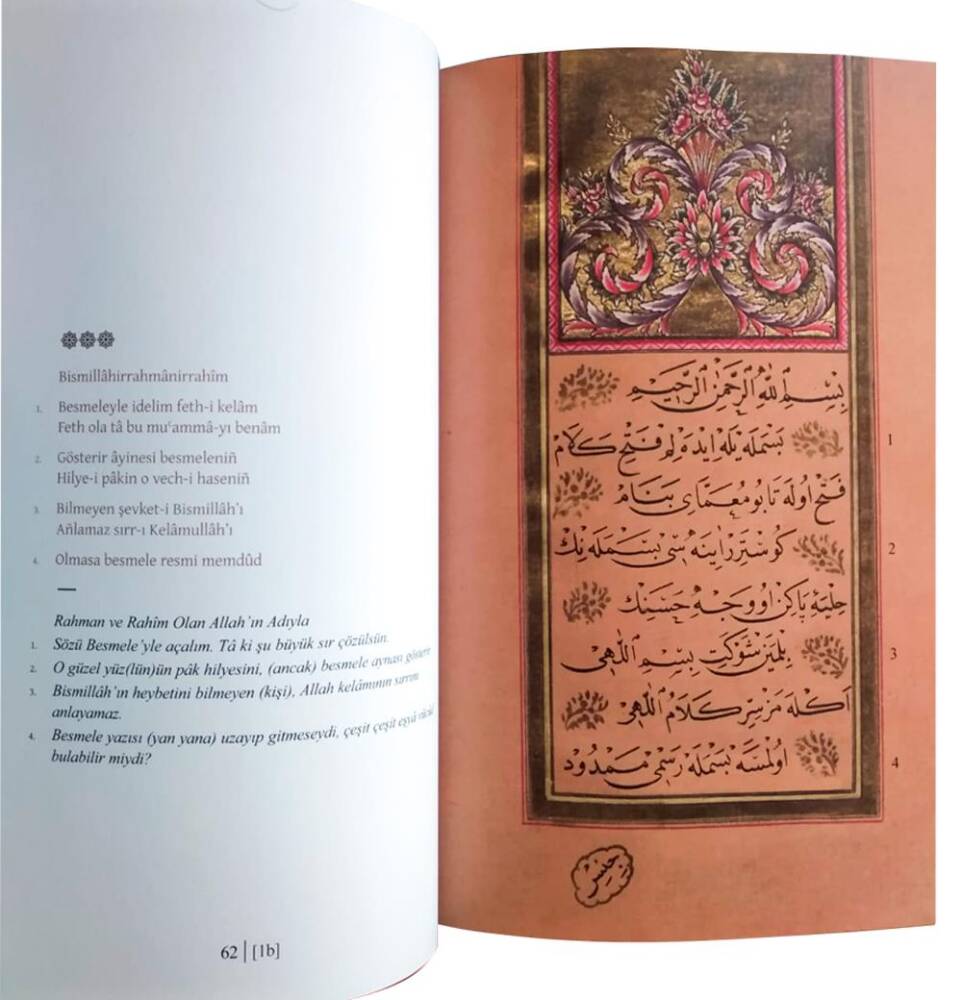 Bismillâhirrahmânirrahîm
1. Besmeleyle idelim feth-i kelâm
Feth ola tâ bu muʿammâ-yı benâm
2. Gösterir âyinesi besmeleniñ
Hilye-i pâkin o vech-i haseniñ
3. Bilmeyen şevket-i Bismillâh'ı
Añlamaz sırr-ı Kelâmullâh'ı
4. Olmasa besmele resmi memdûd
Rahman ve Rahîm Olan Allah'ın Adıyla
1. Sözü Besmele'yle açalım. Tâ ki şu büyük sır çözülsün.
2. O güzel yüz(lün)ün pâk hilyesini, (ancak) besmele aynası
3. Bismillâh'ın heybetini bilmeyen (kişi), Allah kelâmının sırrını
anlayamaz.
4. Besmele yazısı (yan yana) uzayıp gitmeseydi, çeşit çeşit eşyâ
bulabilir miydi?
62 | [1b]
بِسْمِ اللّٰهِ الرَّحْمٰنِ الرَّحِيْمِ
بسمله يله ايده لم فتح كلام 1
فتح اوله تا بو معماى بنام
كوسترر اينه سى بسمله نك 2
حليه پاكن او وجه حسنك
بلمين شوكت بسم اللهى 3
اكله مز سر كلام اللهى
اولمسه بسمله رسمى ممدود 4